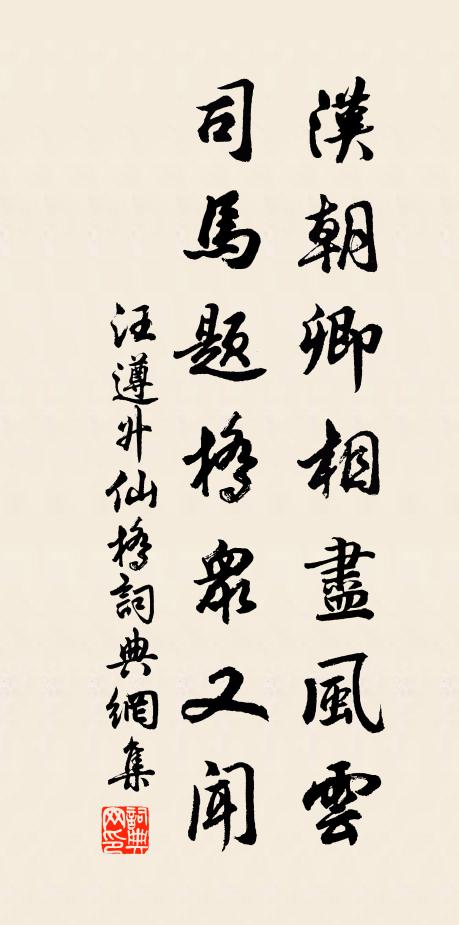 漢朝卿相盡風雲
司馬題橋眾又聞
汪遵升仙橋詞典網集
詞典网印